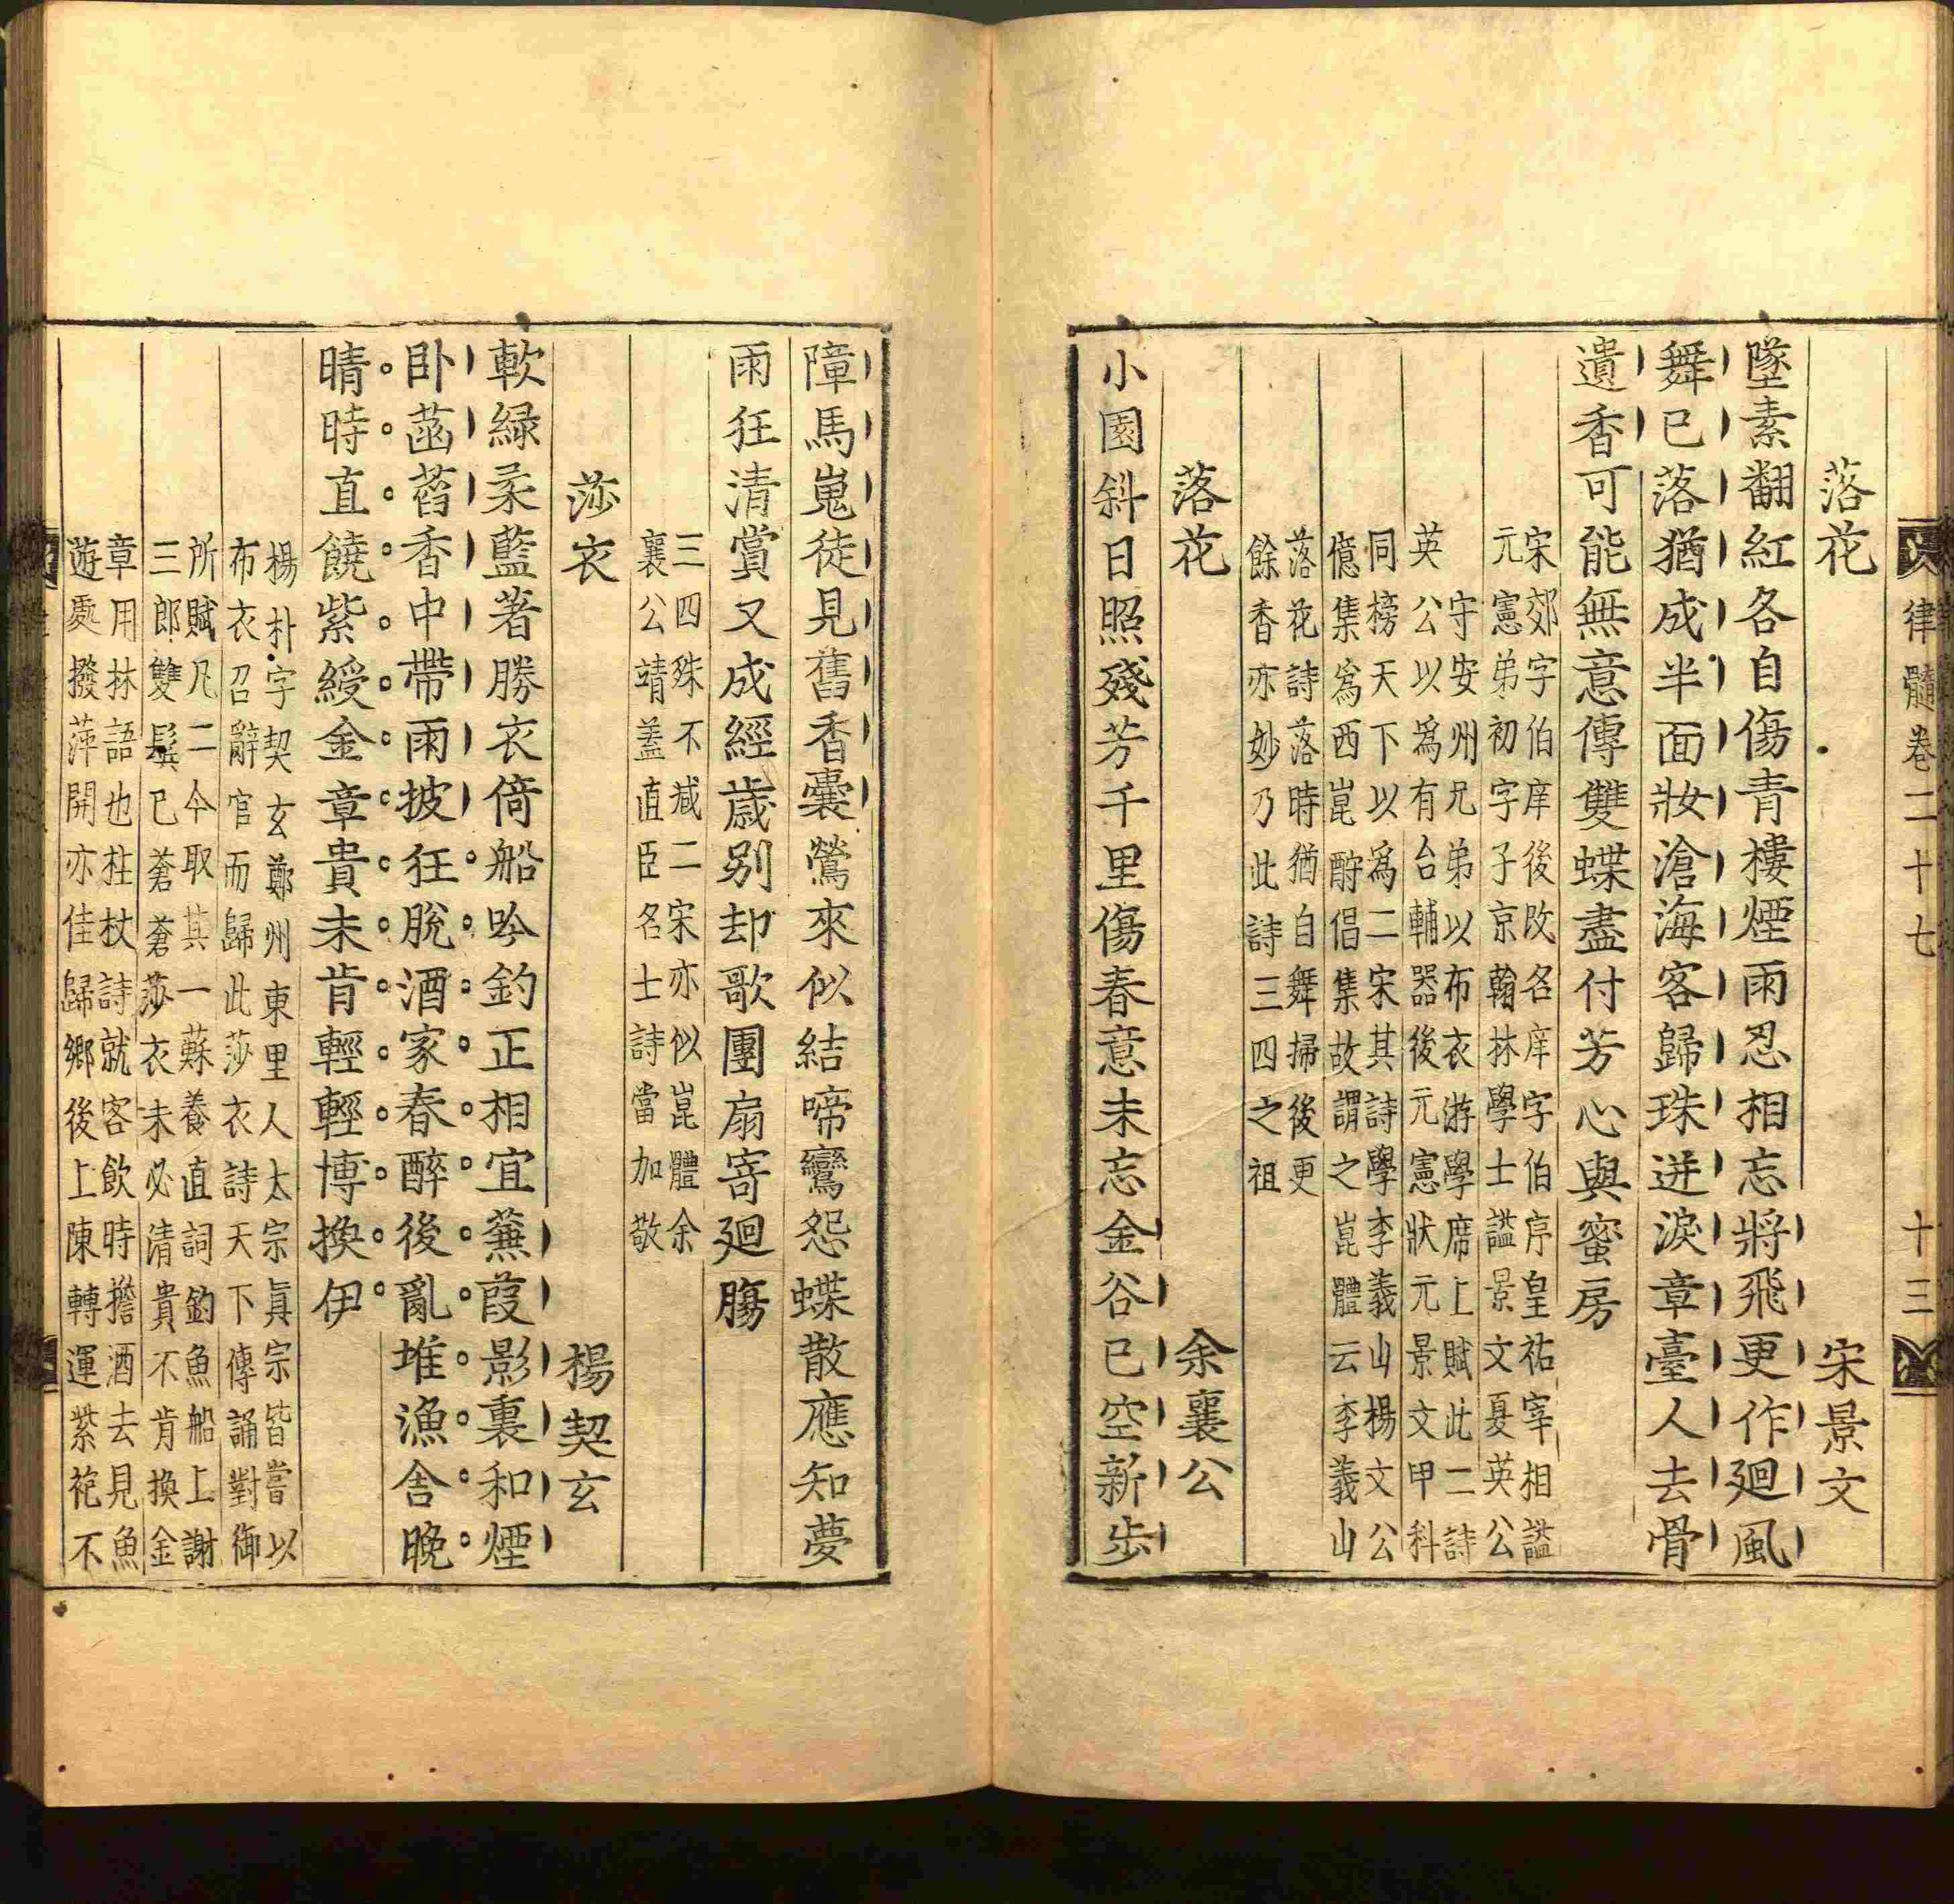 律髓卷二十七 十三
落花 宋景文
墜素翻紅各自傷青樓煙雨忍相忘將飛更作廻風
舞已落猶成半面妝滄海客歸珠迸淚章臺人去骨
遺香可能無意傳雙蝶盡付芳心與蜜房
宋郊字伯庠後改名庠字伯序皇祐宰相謚
元憲弟初字子京翰林學士謚景文夏英公
守安州兄弟以布衣游學席上賦此二詩
英公以爲有台輔器後元憲狀元景文甲科
同榜天下以爲二宋其詩學李義山楊文公
億集爲西崑酧倡集故謂之崑體云李義山
落花詩落時猶自舞掃後更
餘香亦妙乃此詩三四之祖
落花 余襄公
小園斜日照殘芳千里傷春意未忘金谷已空新步
障馬嵬徒見舊香囊鶯來似結啼鸞怨蝶散應知夢
雨狂清賞又成經歲别却歌團扇寄廻膓
三四殊不减二宋亦似崑體余
襄公靖盖直臣名士詩當加敬
莎衣 楊契玄
軟緑柔藍著勝衣倚船吟釣正相宜蒹葭影裏和煙
卧菡萏香中帶雨披狂脫酒家春醉後亂堆漁舍晚
晴時直饒紫綬金章貴未肯輕輕博換伊
楊朴字契玄鄭州東里人太宗眞宗皆嘗以
布衣召辭官而歸此莎衣詩天下傳誦對御
所賦凡二今取其一蘇養直詞釣魚船上謝
三郎雙鬂已蒼蒼莎衣未必清貴不肯換金
章用林語也拄杖詩就客飲時擔酒去見魚
遊處撥萍開亦佳歸鄉後上陳轉運紫袍不